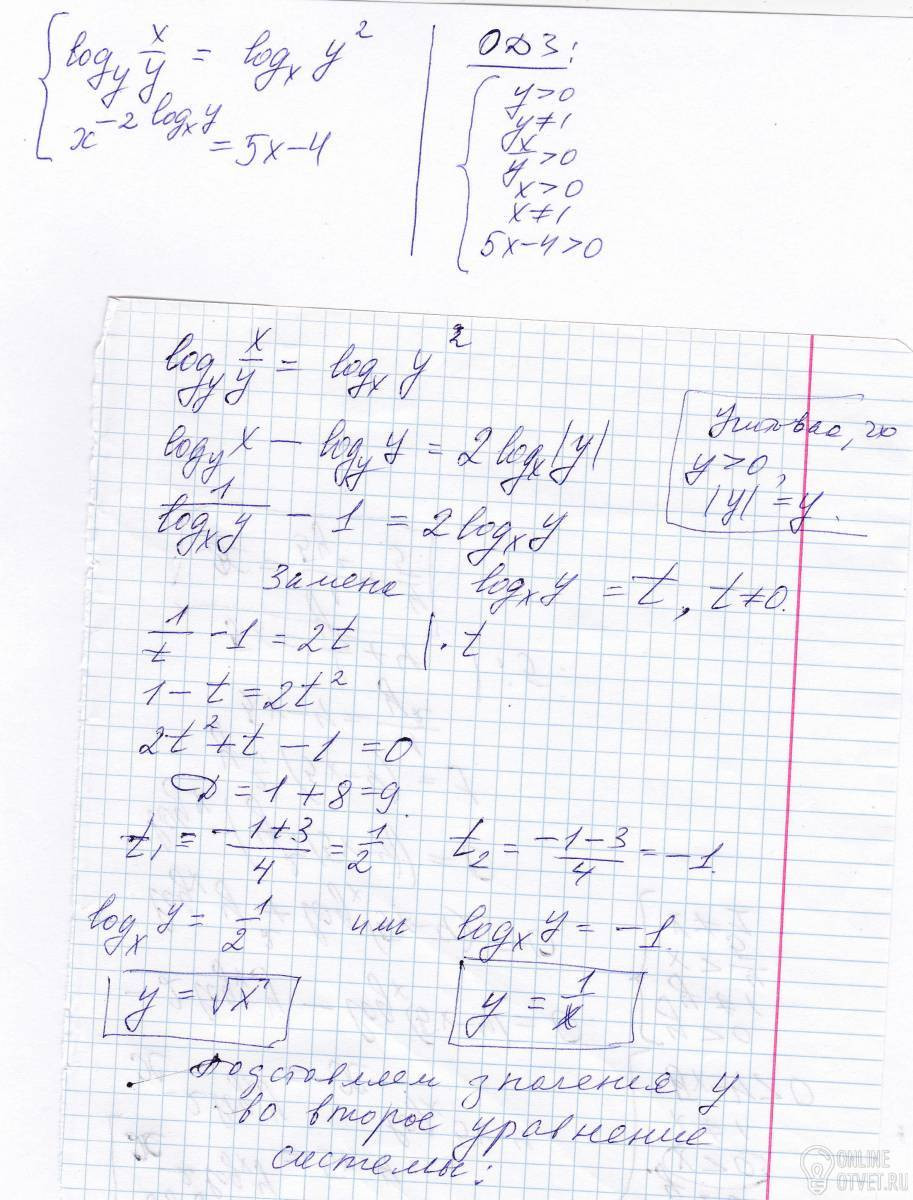 log_y x/y = log_x y²
x^(-2 log_x y) = 5x-4
ОДЗ:
y>0
y≠1
x/y>0
x>0
x≠1
5x-4>0
log_y x/y = log_x y²
log_y x - log_y y = 2 log_x |y|
y>0,
|y|=y.
1/log_x y - 1 = 2 log_x y
Замена log_x y = t, t≠0.
1/t - 1 = 2t |·t
1-t=2t²
2t²+t-1=0
D=1+8=9.
t₁ = (-1+3)/4 = 1/2 t₂ = (-1-3)/4 = -1.
log_x y = 1/2 или log_x y = -1.
y = √x y = 1/x
Подставляем значения y
во второе уравнение
системы:
ONLINE
OTVET.RU